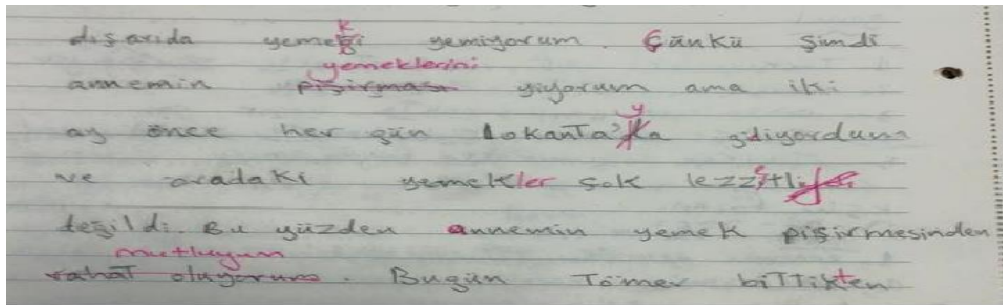 dışarıda yemeği yemiyorum. Çünkü şimdi
k
yemeklerini
annemin pişirması yiyorum ama iki
y
ay önce her gün Lokanta'ya gidiyordum
ve oradaki yemekler çok lezzetli
değildi. Bu yüzden annemin yemek pişirmesinden
mutluyum
rahat oluyorum. Bugün Tömer bittikten